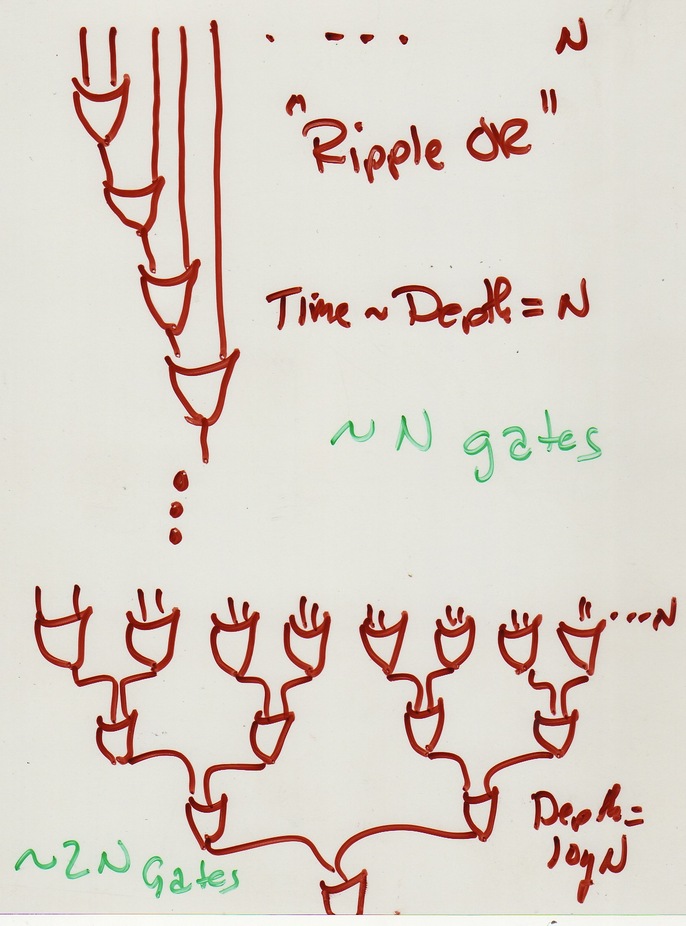 . - - - . N
"Ripple OR"
Time ~ Depth = N
~ N gates
...N
Depth =
log N
~2N Gates